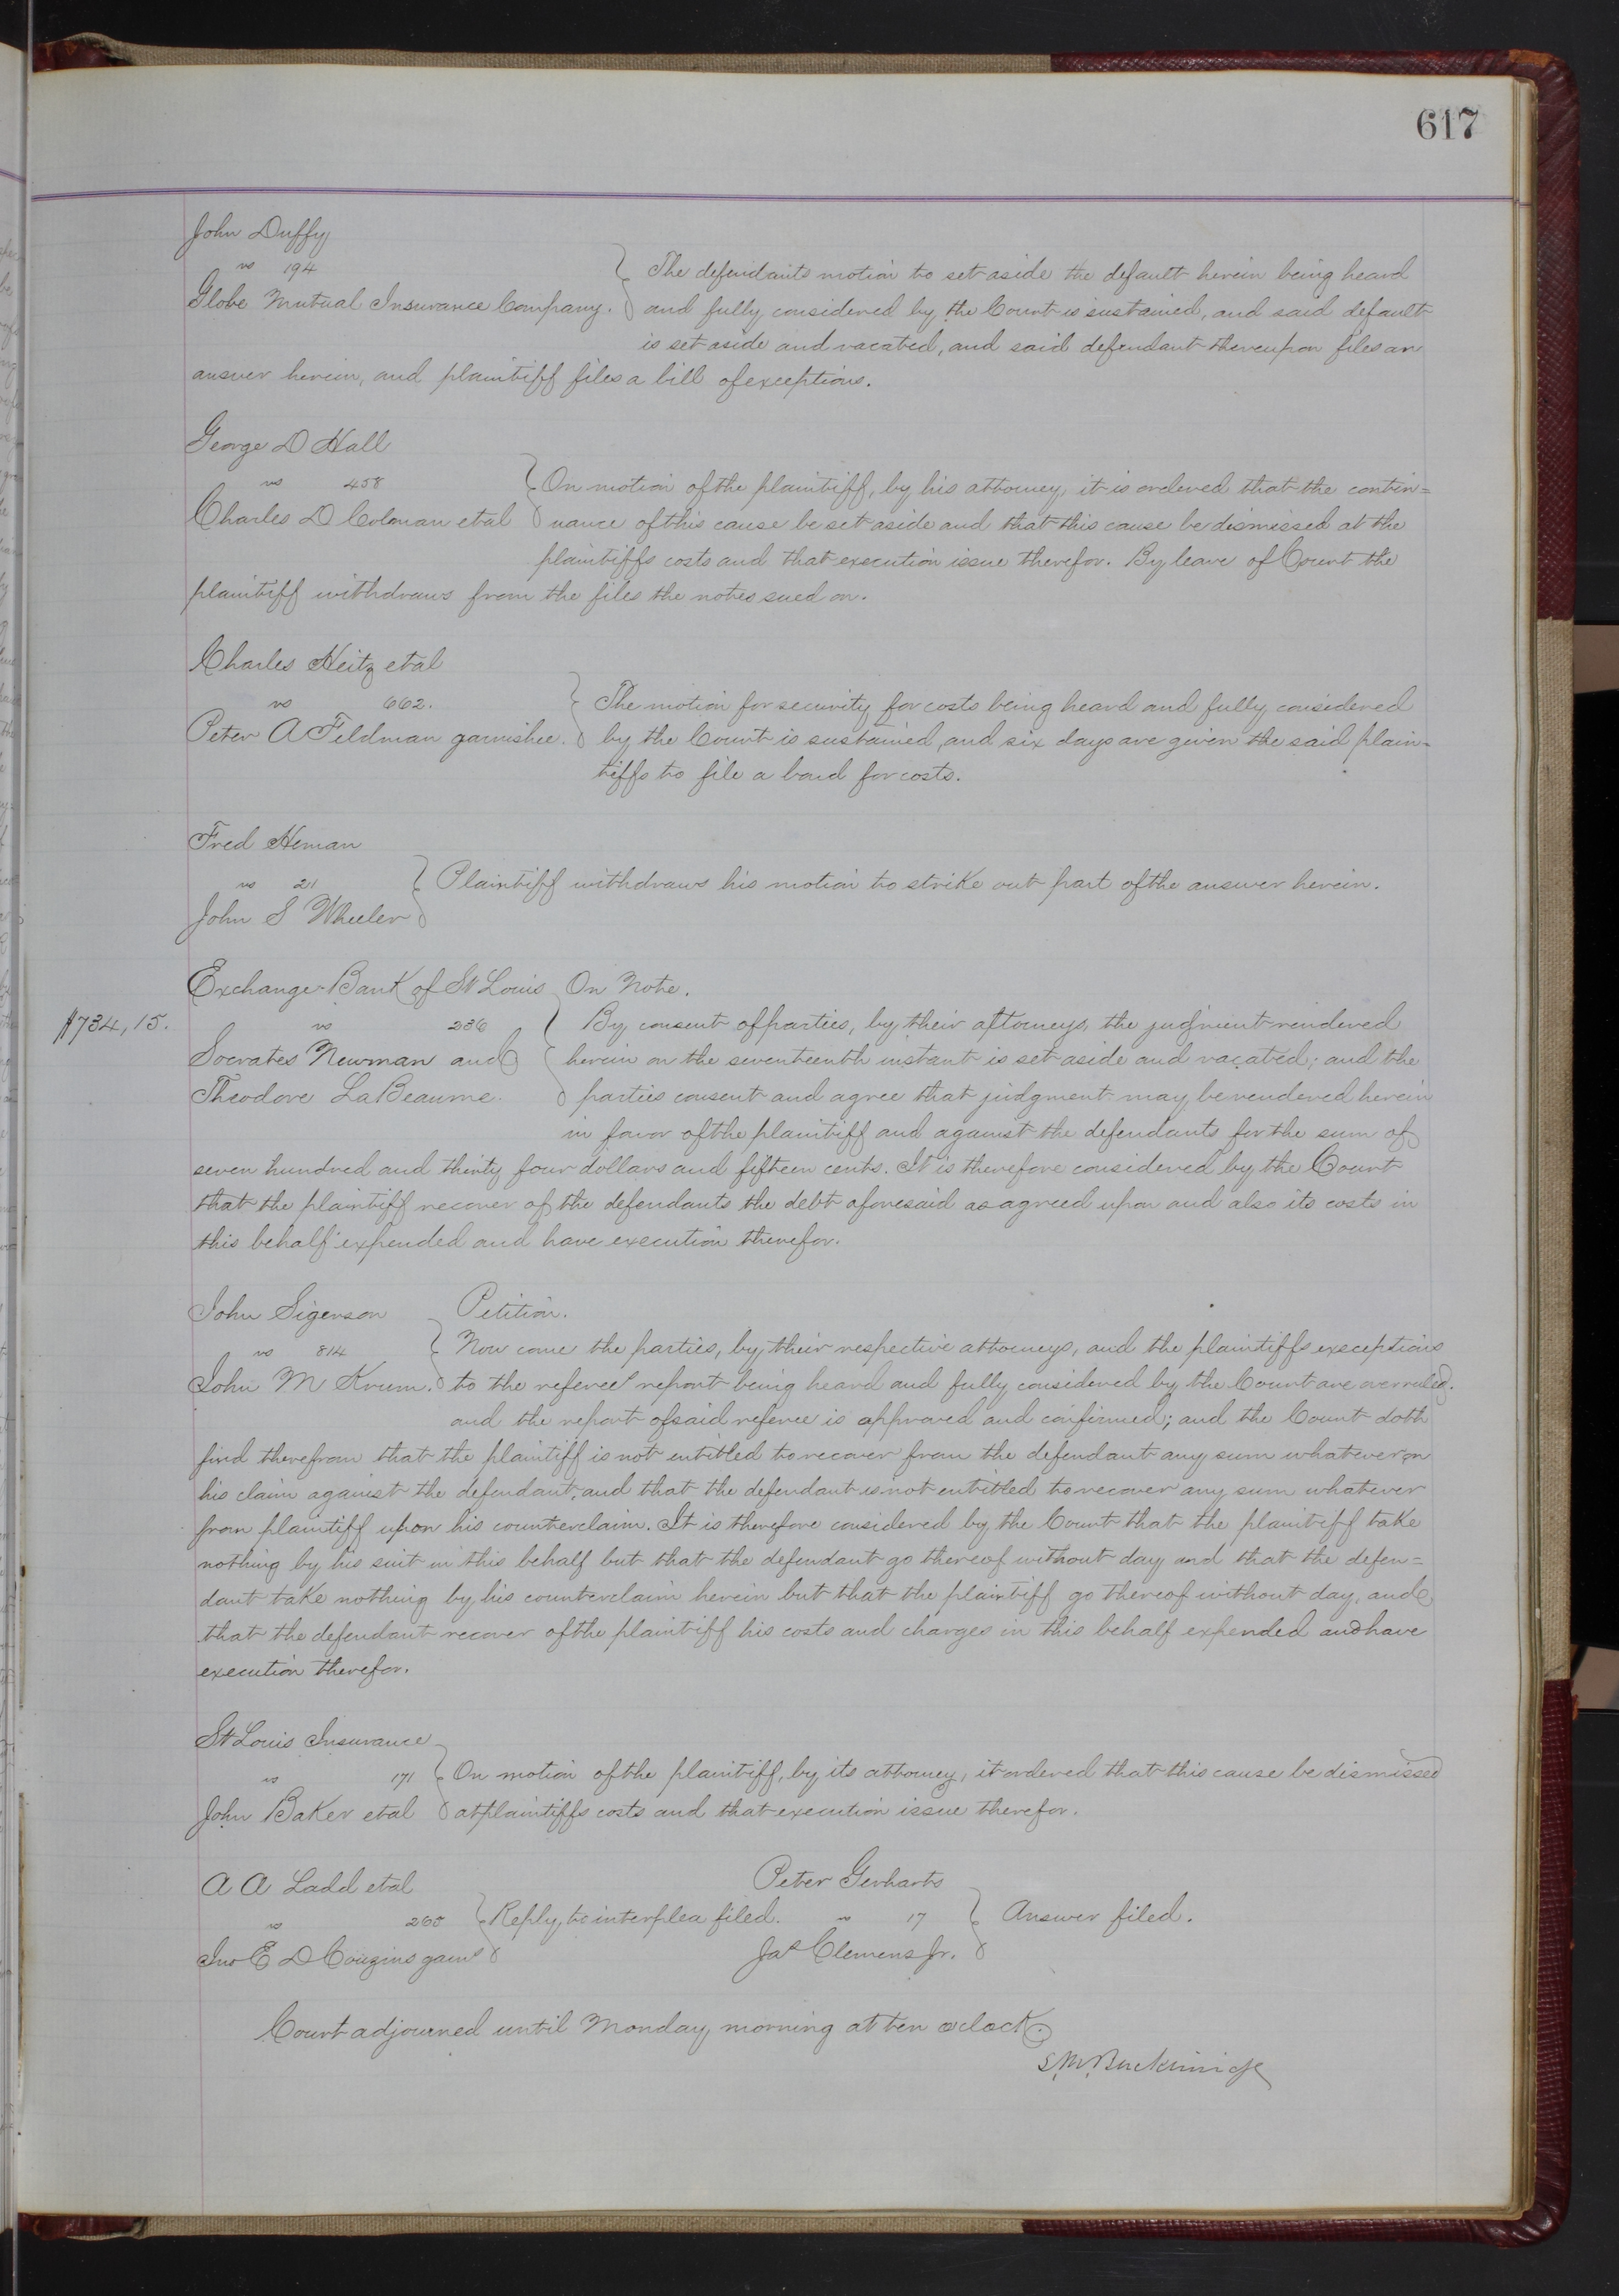 617
John Duffy
vs 194
Globe Mutual Insurance Company.
The defendants motion to set aside the default herein being heard
and fully considered by the Court is sustained, and said default
is set aside and vacated, and said defendant thereupon files an
answer herein, and plaintiff files a bill of exceptions.
George D Hall
vs 458
Charles D Colman et al
On motion of the plaintiff, by his attorney, it is ordered that the contin=
uance of this cause be set aside and that this cause be dismissed at the
plaintiffs costs and that execution issue therefor. By leave of Court the
plaintiff withdraws from the files the notes sued on.
Charles Heitz et al
vs 662.
Peter A Feldman garnishee.
The motion for security for costs being heard and fully considered
by the Court is sustained, and six days are given the said plain=
tiffs to file a bond for costs.
Fred Heman
vs 211
John S Wheeler
Plaintiff withdraws his motion to strike out part of the answer herein.
Exchange Bank of St Louis
$734,15.
vs 236
Socrates Newman and
Theodore LaBeaume.
On Note.
By consent of parties, by their attorneys, the judgment rendered
herein on the seventeenth instant is set aside and vacated; and the
parties consent and agree that judgment may be rendered herein
in favor of the plaintiff and against the defendants for the sum of
seven hundred and thirty four dollars and fifteen cents. It is therefore considered by the Court
that the plaintiff recover of the defendants the debt aforesaid as agreed upon and also its costs in
this behalf expended and have execution therefor.
John Sigerson
vs 814
John M Krum.
Petition.
Now come the parties, by their respective attorneys, and the plaintiffs exceptions
to the referees report being heard and fully considered by the Court are overruled.
and the report of said referee is approved and confirmed; and the Court doth
find therefrom that the plaintiff is not entitled to recover from the defendant any sum whatever on
his claim against the defendant, and that the defendant is not entitled to recover any sum whatever
from plaintiff upon his counterclaim. It is therefore considered by the Court that the plaintiff take
nothing by his suit in this behalf but that the defendant go thereof without day and that the defen=
dant take nothing by his counterclaim herein but that the plaintiff go thereof without day, and
that the defendant recover of the plaintiff his costs and charges in this behalf expended and have
execution therefor.
St Louis Insurance
vs 171
John Baker et al
On motion of the plaintiff, by its attorney, it ordered that this cause be dismissed
at plaintiffs costs and that execution issue therefor.
A A Ladd et al
vs 260
Jno E D Couzins garns
Reply to interplea filed.
Peter Gerharts
vs 17
Jas Clemens Jr.
Answer filed.
Court adjourned until Monday morning at ten oclock.
S. M. Breckinridge